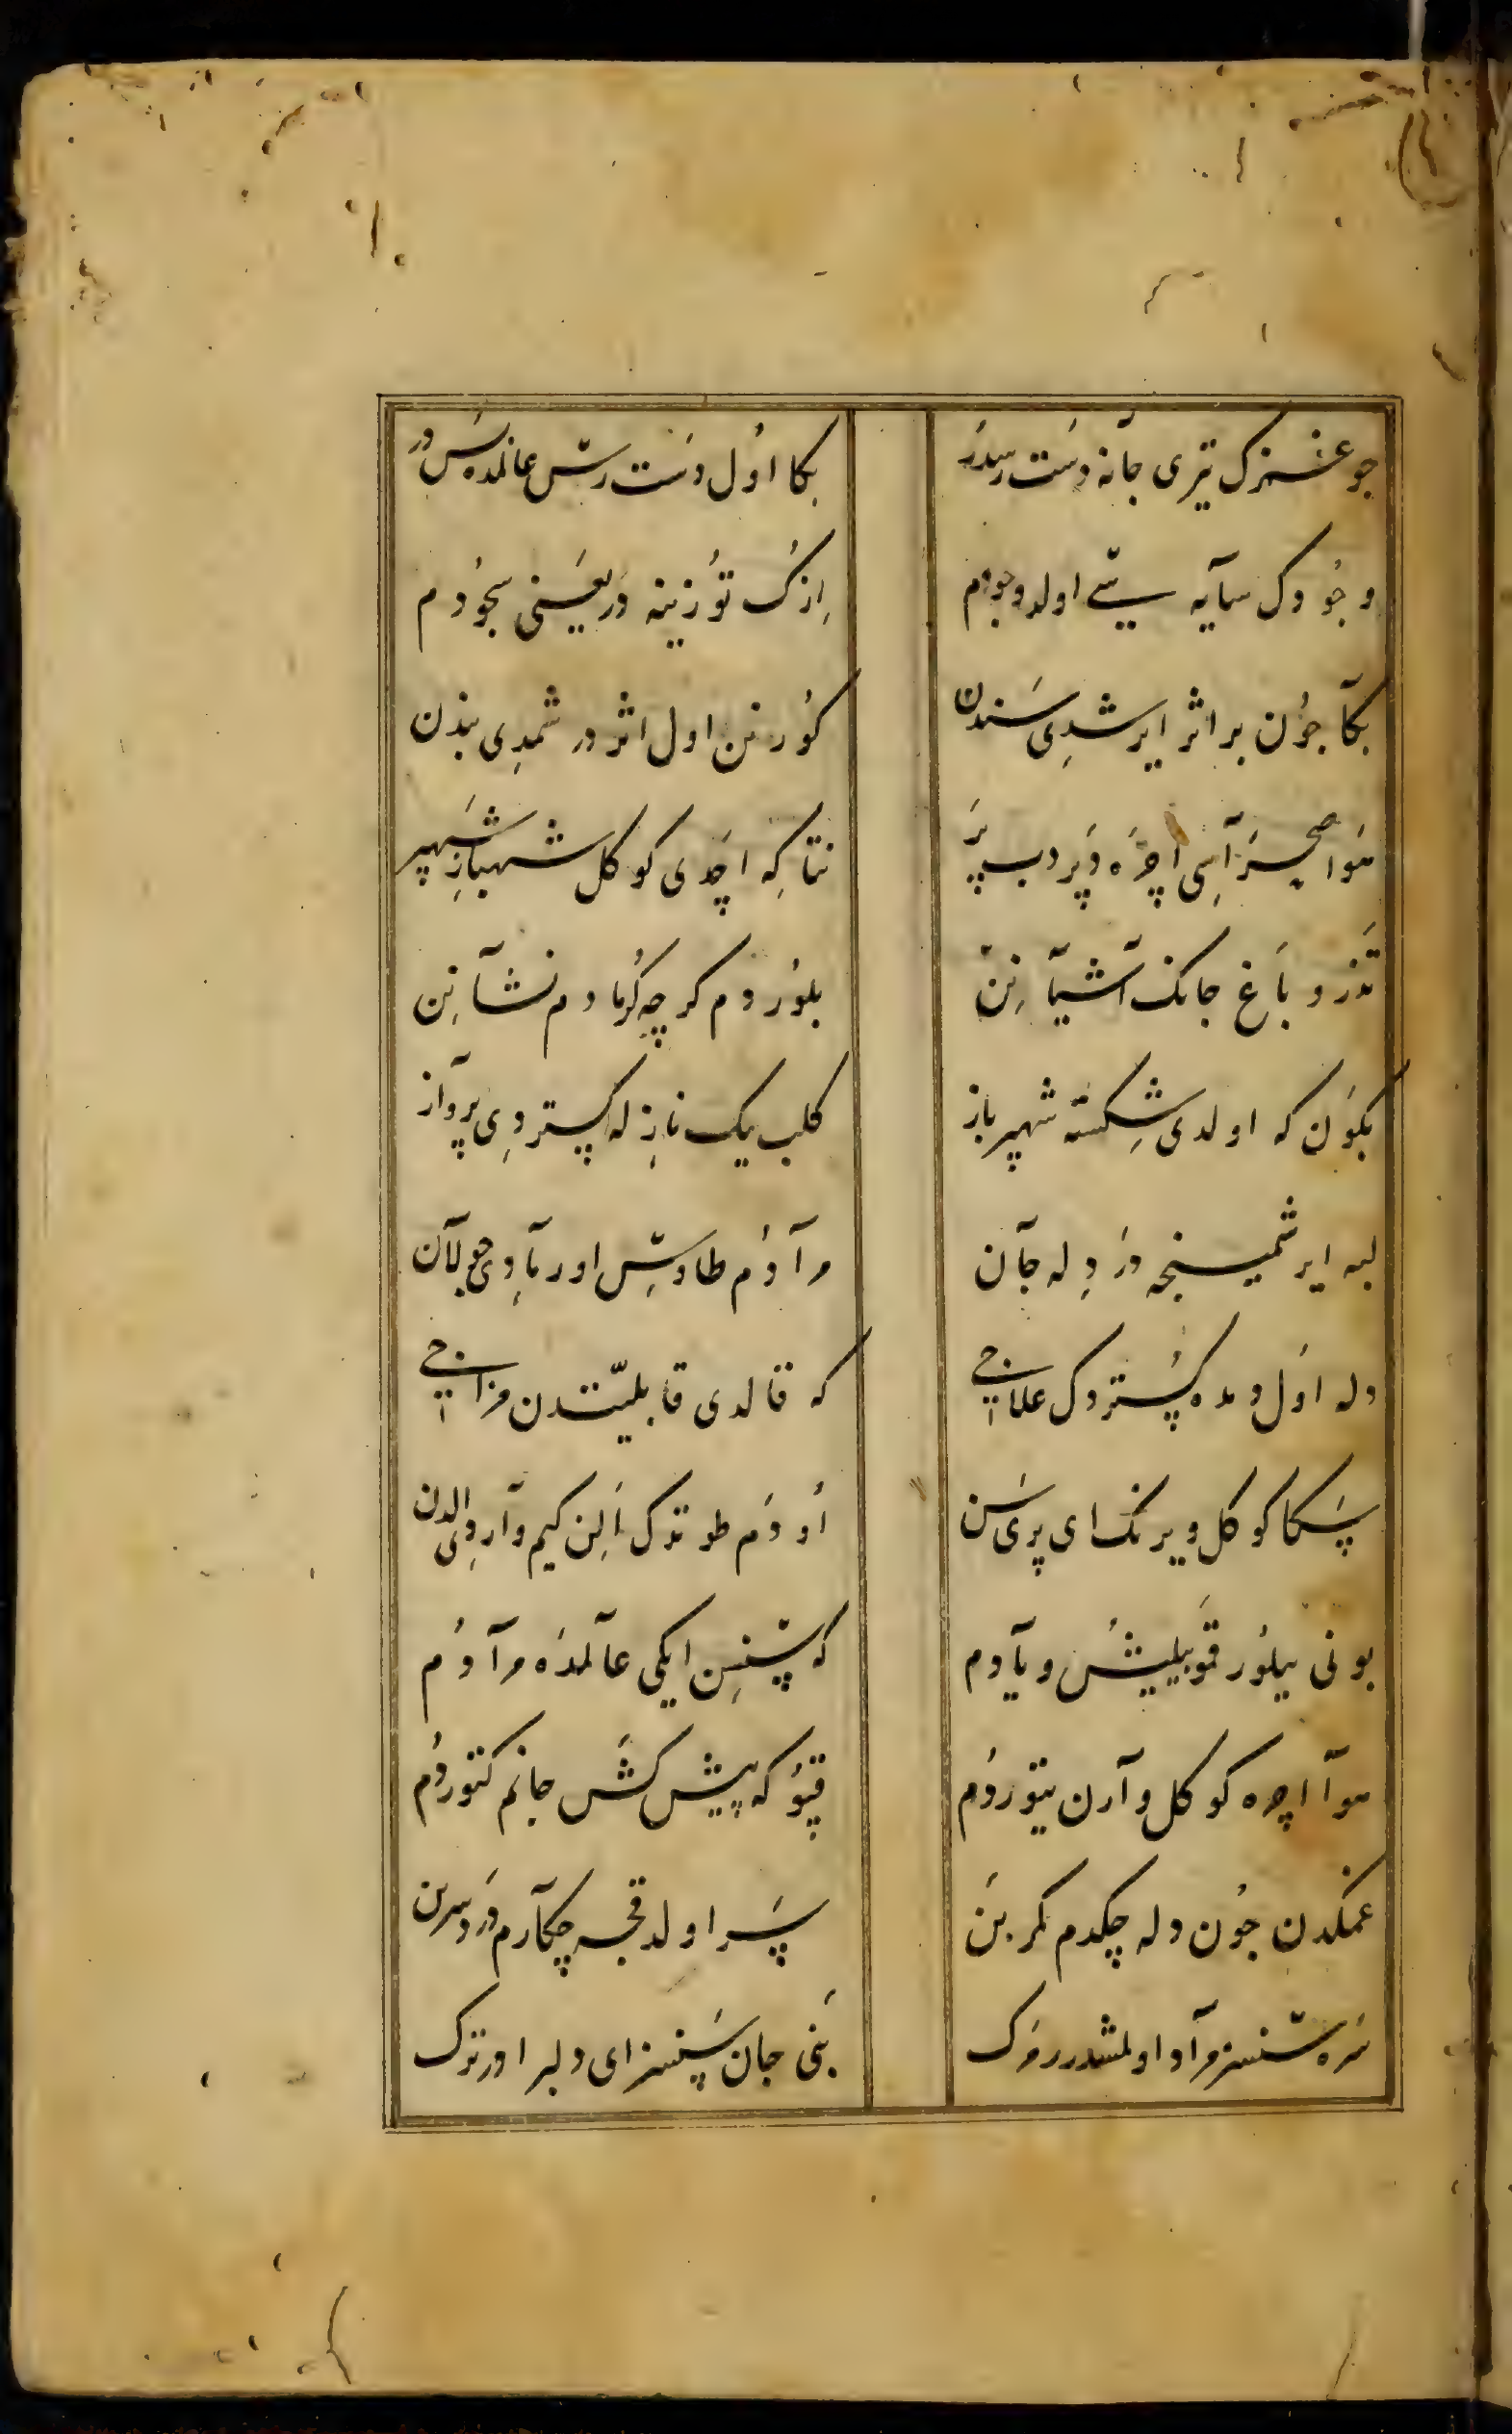 چو عشقزک تیری جانه دست رسدر بکا اول دست رس عالمده بس در
وجودک سایه سی اولدو وجودم ازک توزینه در یعنی سجودم
بکا چون بر اثر ایرشدی سندن کورنن اول اثر در شمدی بندن
هوا صحراسی اچره پر دب پر نتا که اچدی کوکل شهباز شهپر
تذرو باغ جانک آشیانن بلوردم کرچه کرمادم نشانن
بکون که اولدی شکسته شهپر باز کلب یک نازله کستردی پرواز
لبه ایرشمینجه در دله جان مرادم طاوسی اورمادی جولان
دله اول دمده کستردک علاجی که قالدی قابلیتدن مزاجی
پس کا کوکل ویرنک ای پری سن او دم طوتدک الن کیم واردی الدن
بونی بیلور قمو بیلیش و یادم که سنسن ایکی عالمده مرادم
هوا اچره کوکل وارن یتوردم قپو که پیش کش جانم کتوردم
غمکدن چون دله چکدم کمر بن پسر اولدقجه چکارم درد سرن
سره سنسز مراد اولمشدر مرک بنی جان سنسز ای دلبر اورترک